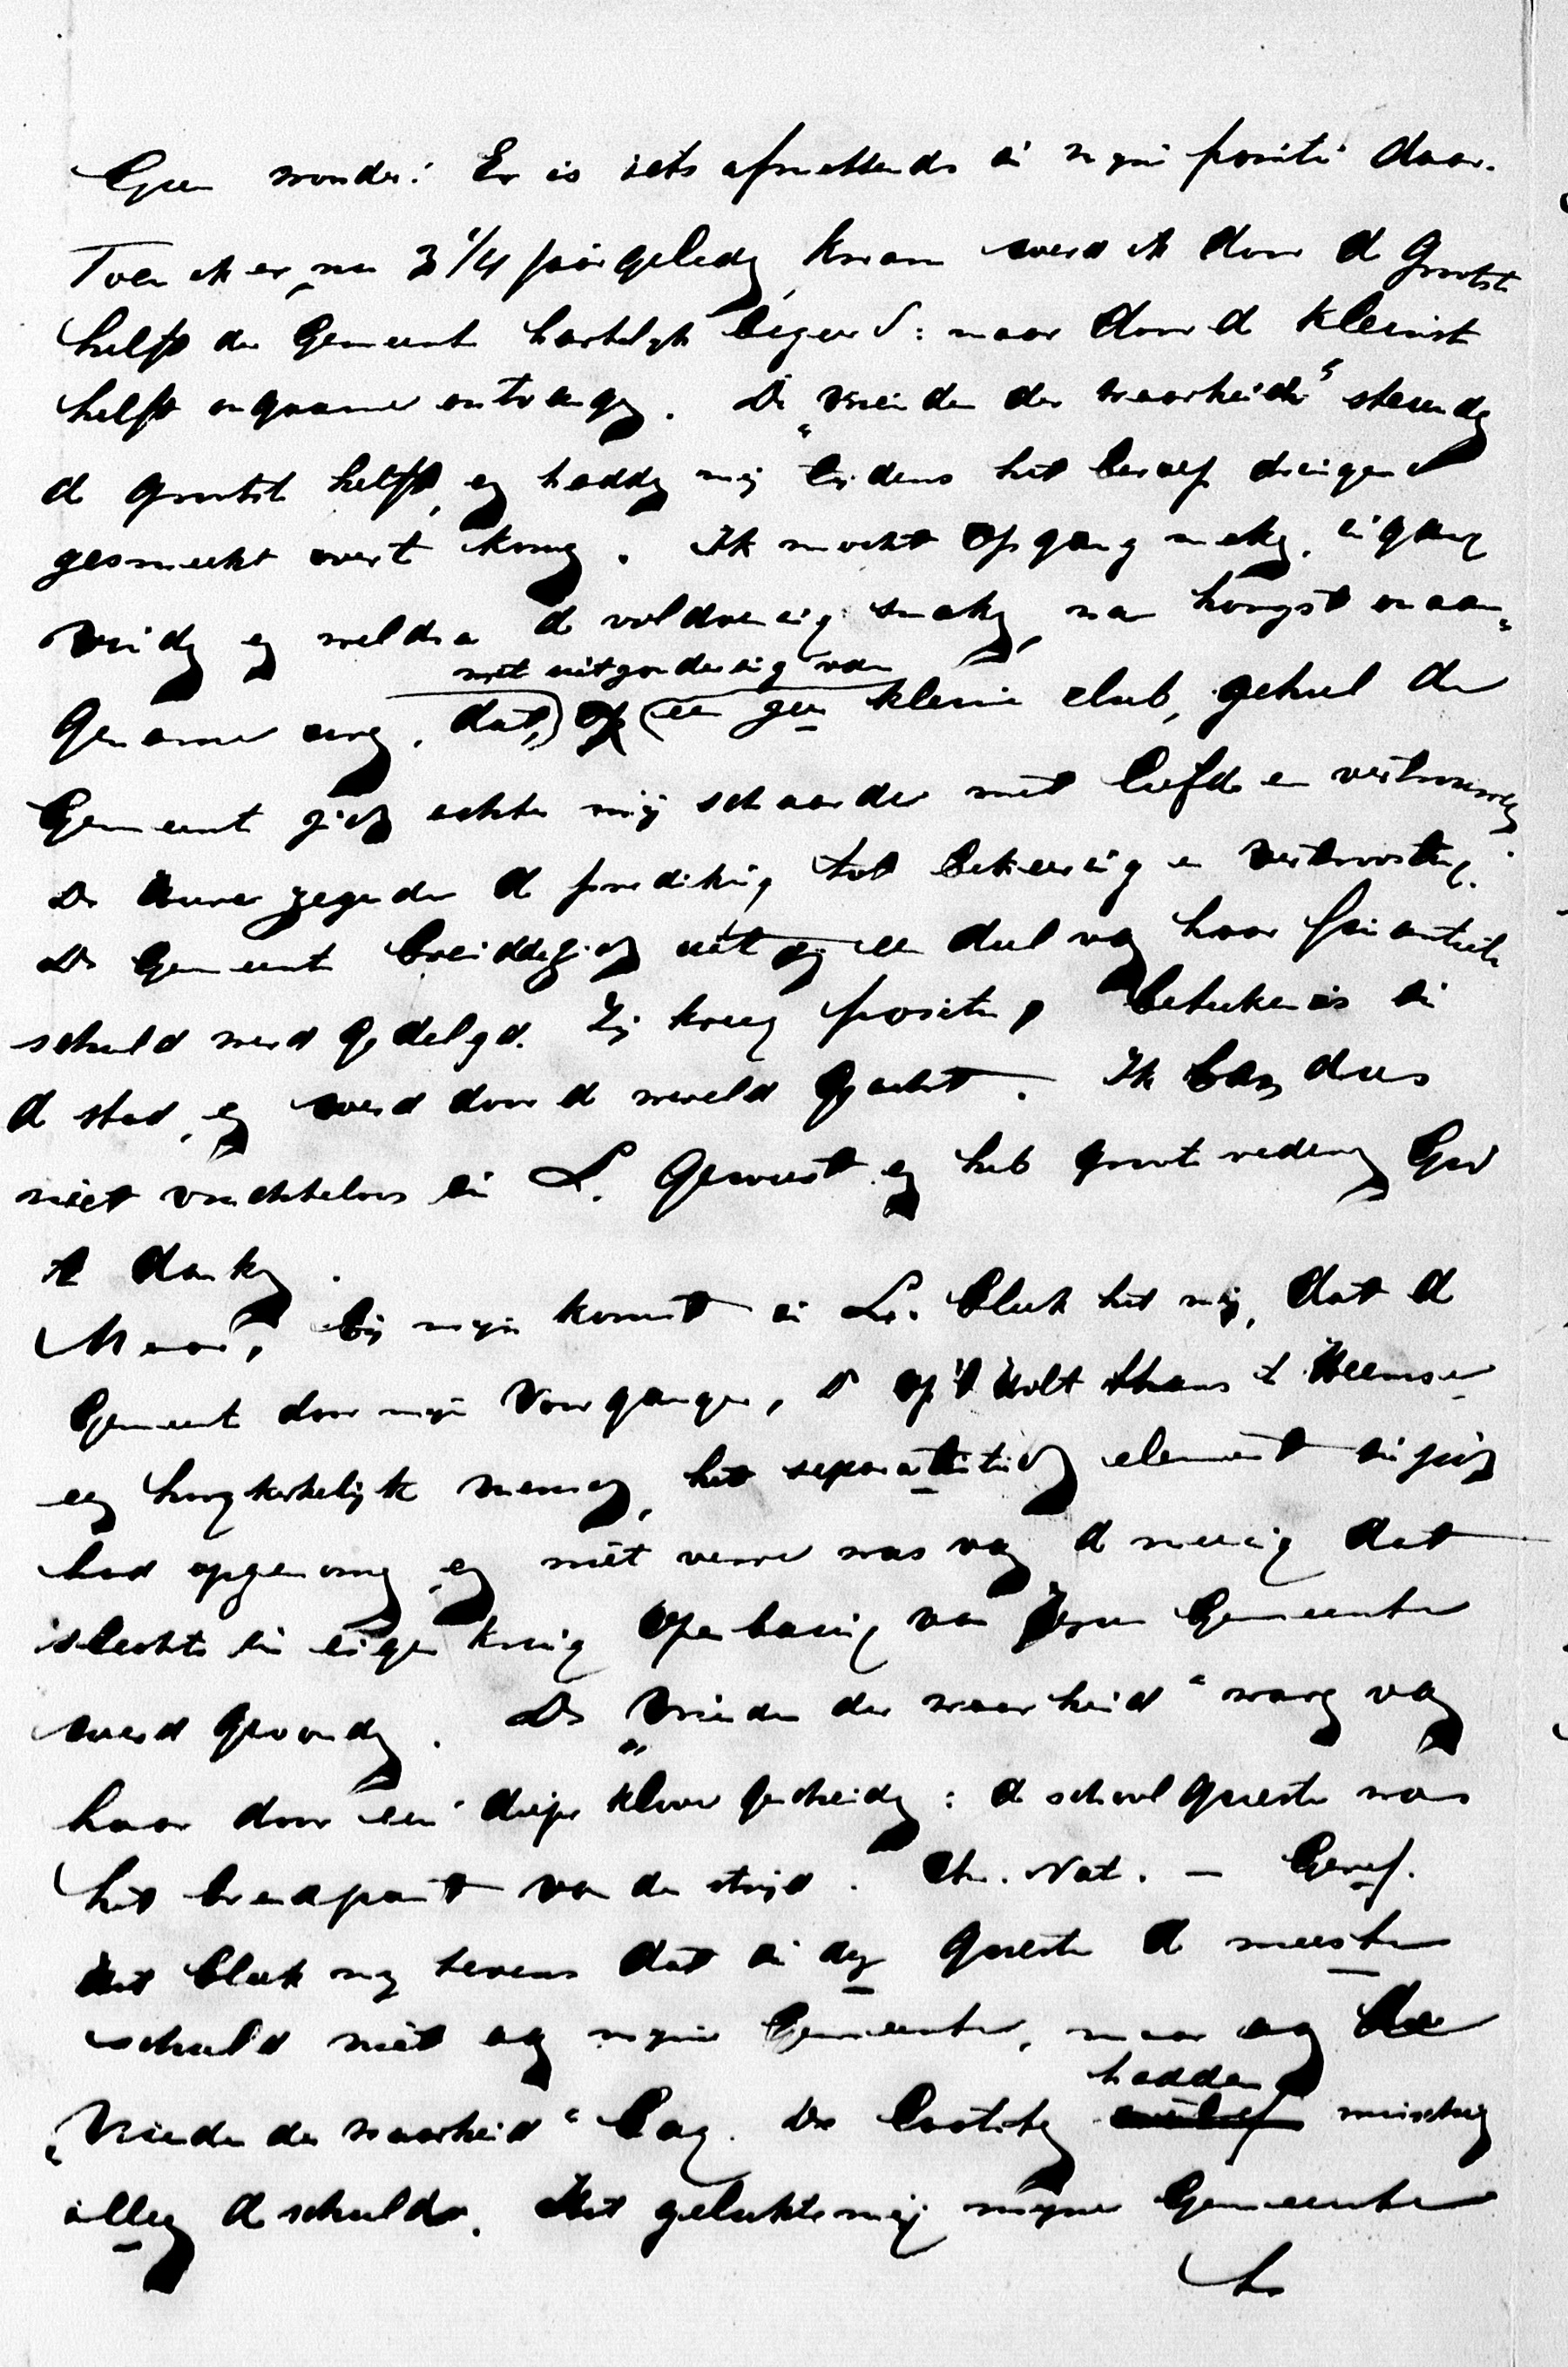 Geen wonder! Er is iets afmattends in mijn positie daar.
Toen ik er nu 3 1/4 jaar geleden kwam werd ik door de grootste
helft der Gemeente hartelijk begeerd: maar door de kleinste
helft ongaarne ontvangen. De „Vrienden der waarheid" steunden
de grootste helft, en hadden mij tijdens het beroep dringend
gesmeekt over te komen. Ik mocht opgang maken, ingang
vinden en weldra de voldoening smaken, na hoogst onaan-
met uitzondering van
gename uren, dat, een zeer kleine club, geheel de
Gemeente zich achter mij schaarde met liefde en vertrouwen.
De Heere zegende de prediking tot bekeering en vertroosting.
De Gemeente breidde zich uit en een deel van haar financieele
schuld werd gedelgd. Zij kreeg positie, beteekenis in
de stad, en werd door de wereld geacht. Ik ben dus
niet vruchteloos in L. geweest en heb groote redenen God
te danken.
Maar, bij mijn komst in L. bleek het mij, dat de
Gemeente door mijn Voorganger, op 't Holt thans te Heemse
een hoogkerkelijke meening, het separatistisch element in zich
had opgenomen en niet verre was van de meening dat
slechts in eigen kring openbaring van Jezus Gemeente
werd gevonden. De „Vrienden der waarheid" waren van
haar door een diepe kloof gescheiden: de schoolqueste was
het brandpunt van den strijd. Ch. Nat. — Geref.
Het bleek mij tevens dat in den queste de meeste
schuld niet aan mijne Gemeente, maar aan de
hadden
„Vrienden der waarheid" lag. De menschen
alleen de schuld. Het gelukte mij mijne Gemeente